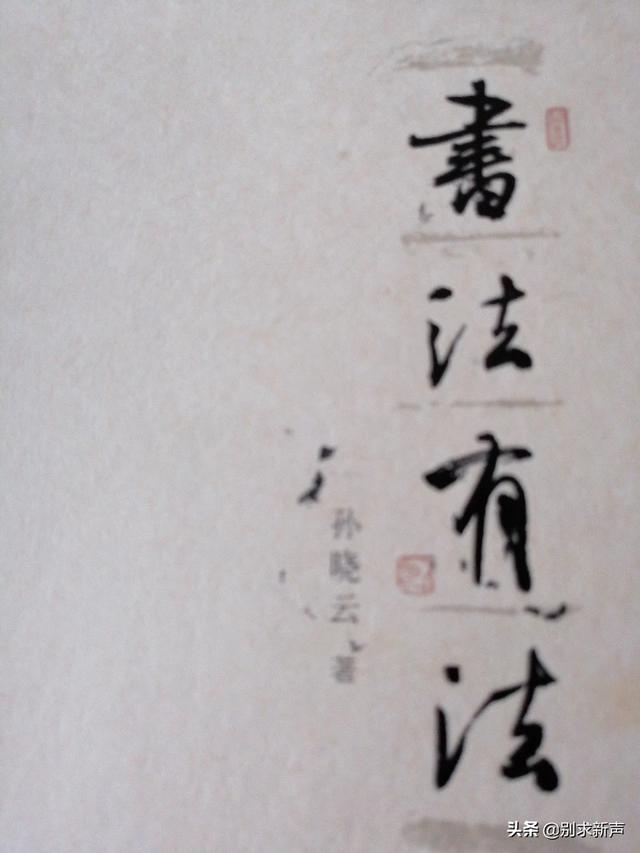 書法有法
孙晓云 著
头条 @别求新声